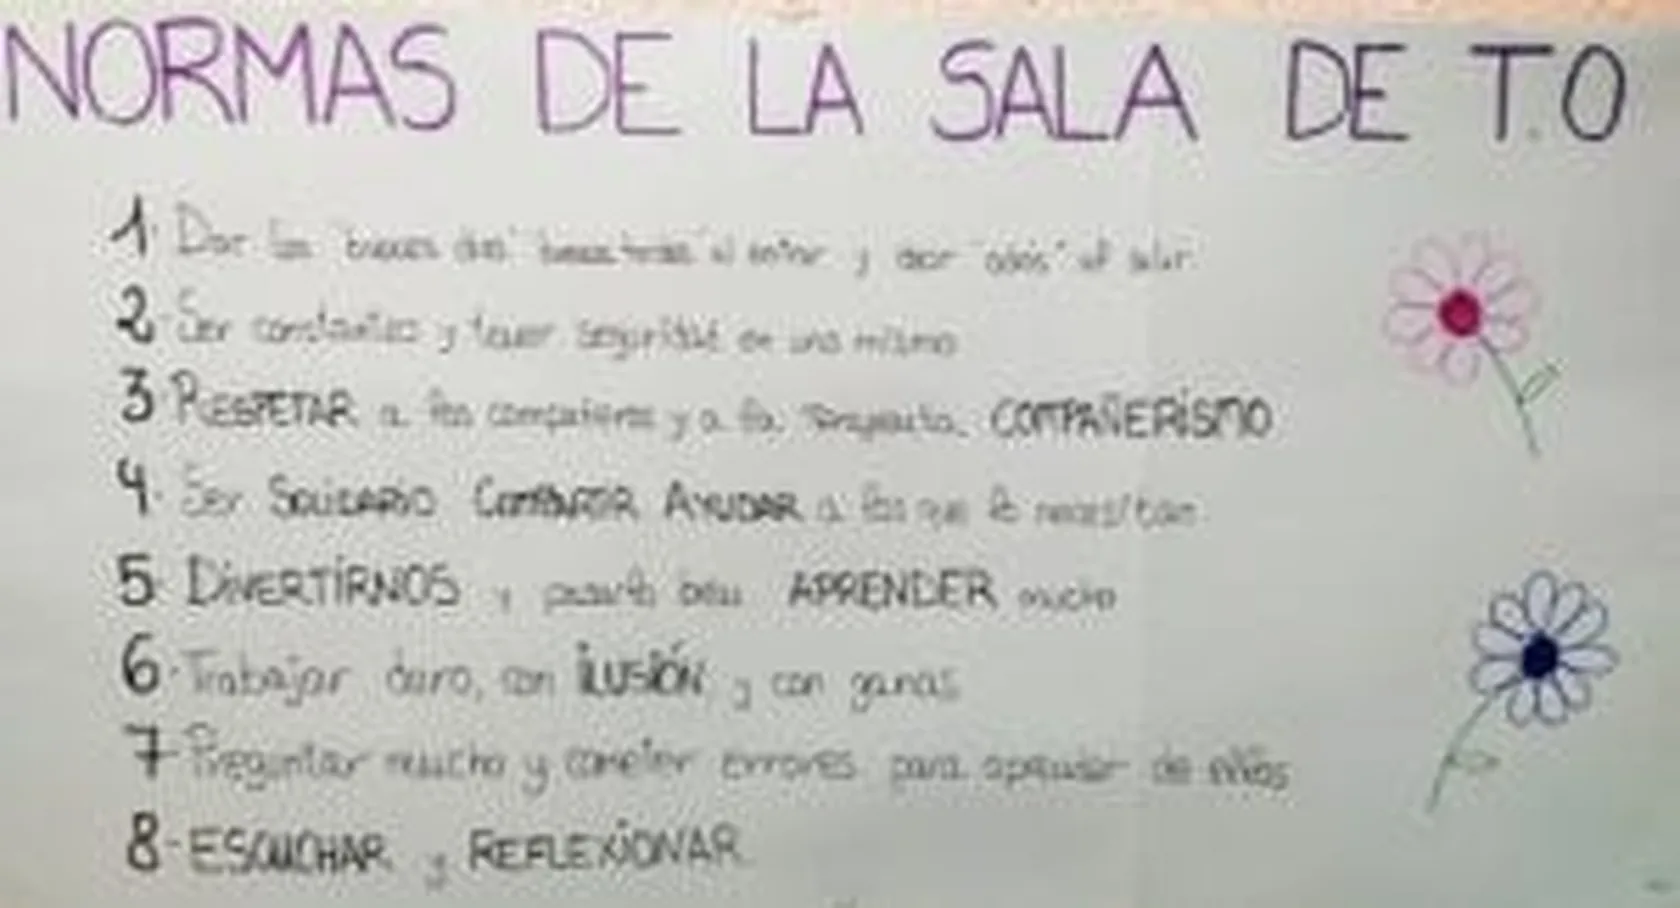 NORMAS DE LA SALA DE T.O
1. Dar los "buenos días" "buenas tardes" al entrar y decir "adiós" al salir
2. Ser constantes y tener seguridad en uno mismo
3. RESPETAR a los compañeros y a la COMPAÑERISMO
4. Ser SOLIDARIO COMPARTIR AYUDAR a los que lo necesitan
5. DIVERTIRNOS y pasarlo bien APRENDER mucho
6. Trabajar duro, con ILUSIÓN y con ganas
7. Preguntar mucho y cometer errores para aprender de ellos
8. ESCUCHAR y REFLEXIONAR